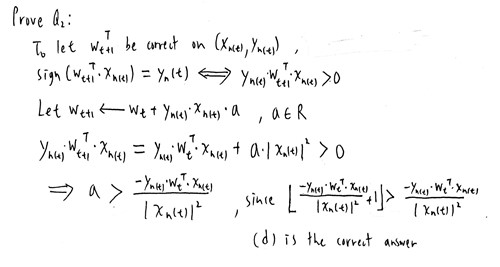 Prove Q₂:
To let w_{t+1}^T be correct on (x_{n(t)}, y_{n(t)}),
sign(w_{t+1}^T · x_{n(t)}) = y_n(t) ⟺ y_{n(t)} · w_{t+1}^T · x_{n(t)} > 0
Let w_{t+1} ← w_t + y_{n(t)} · x_{n(t)} · a , a ∈ R
y_{n(t)} · w_{t+1}^T · x_{n(t)} = y_{n(t)} · w_t^T · x_{n(t)} + a · |x_{n(t)}|² > 0
⟹ a > \frac{-y_{n(t)} · w_t^T · x_{n(t)}}{|x_{n(t)}|²} , since ⌊\frac{-y_{n(t)} · w_t^T · x_{n(t)}}{|x_{n(t)}|²} + 1⌋ > \frac{-y_{n(t)} · w_t^T · x_{n(t)}}{|x_{n(t)}|²}
(d) is the correct answer